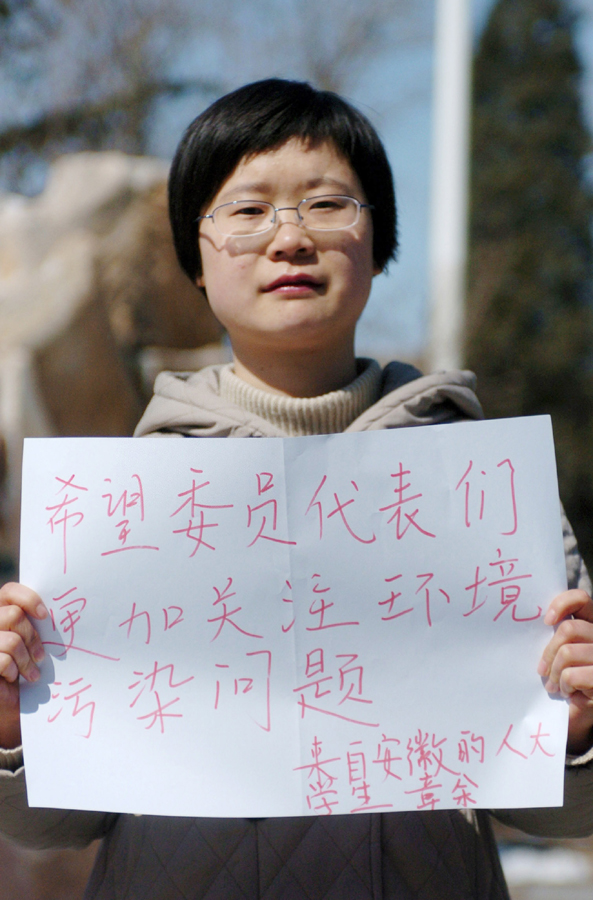 希望委员代表们
更加关注环境
污染问题
来自安徽的人大
学生 章余